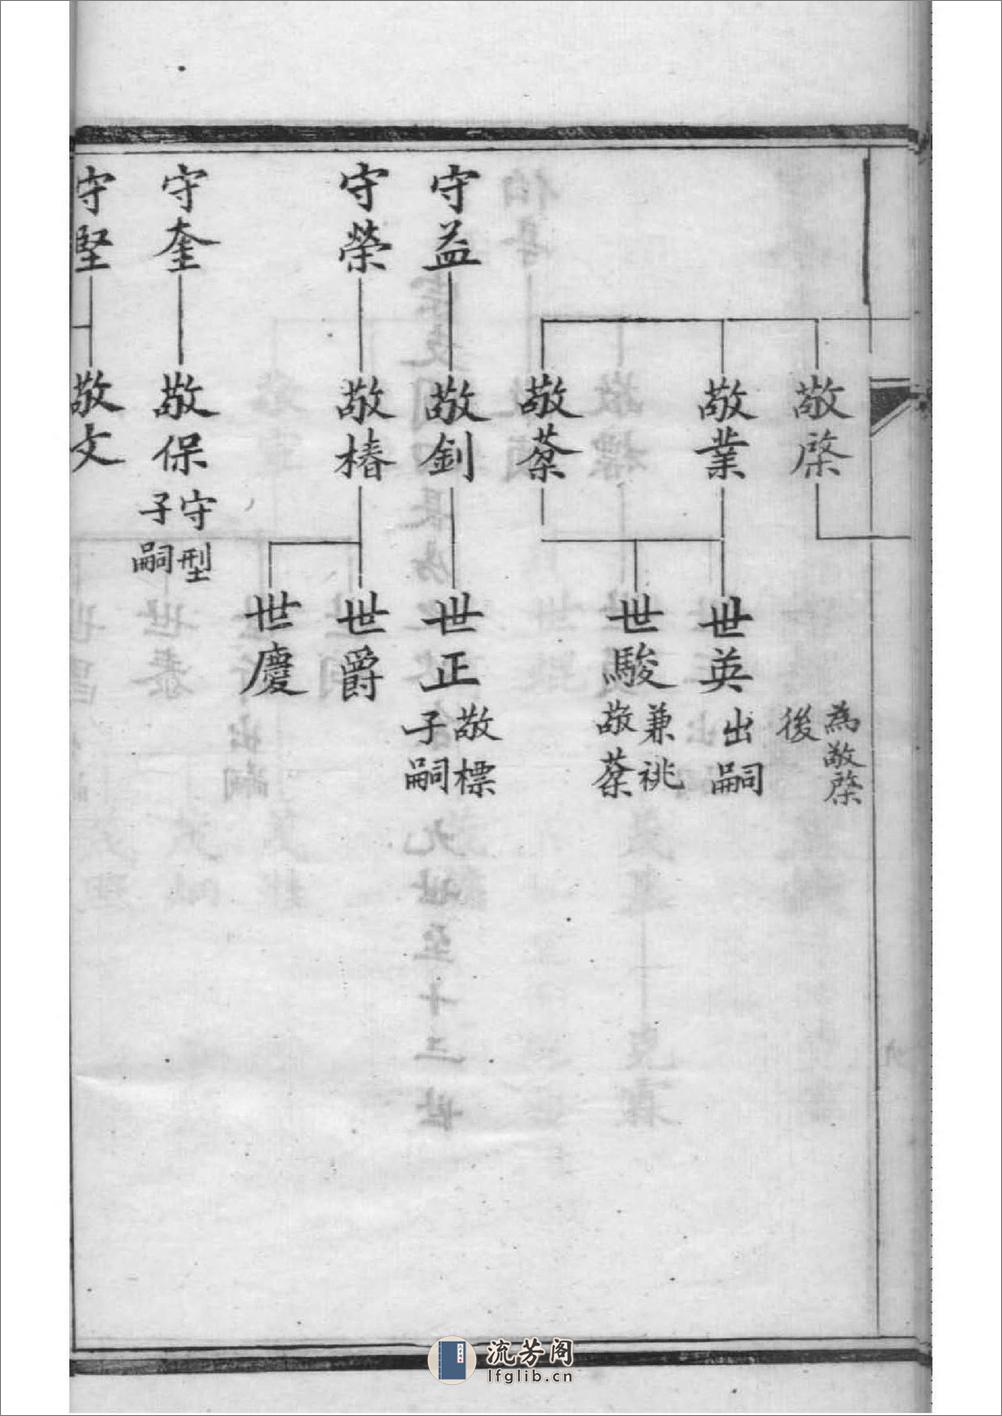 為敬棨
後
敬棨
敬業
世英
出嗣
世駿
兼祧
敬棻
敬棻
守益
敬釗
世正
敬標
子嗣
守榮
敬椿
世爵
世慶
守奎
敬保
守型
子嗣
守堅
敬文
流芳阁
lfglib.cn